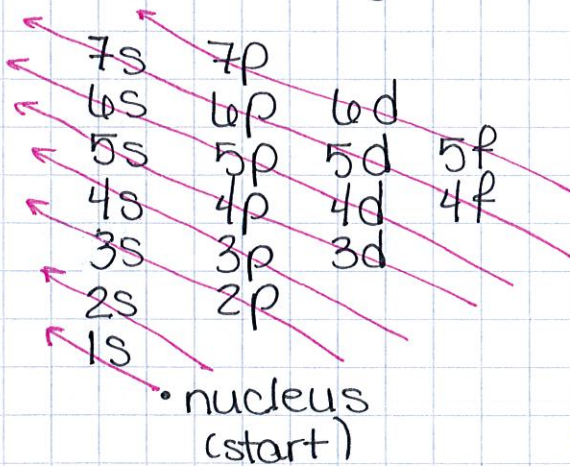 7s 7p
6s 6p 6d
5s 5p 5d 5f
4s 4p 4d 4f
3s 3p 3d
2s 2p
1s
• nucleus
(start)